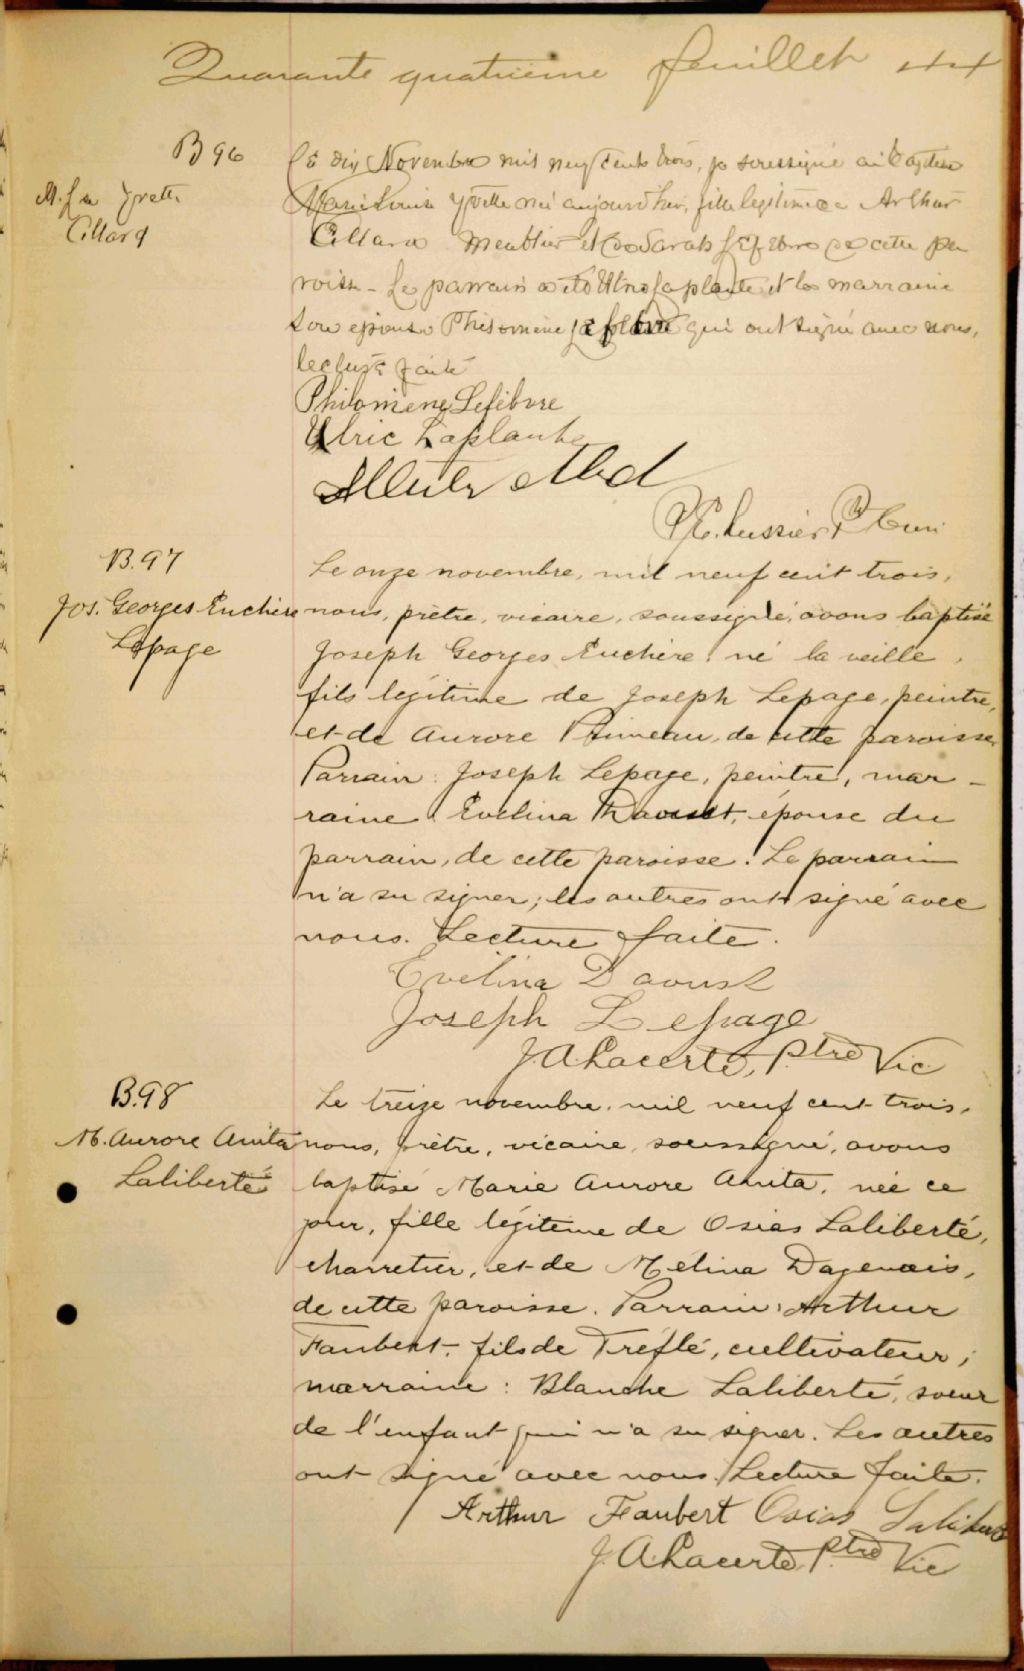 Quarante quatrième feuillet 44
B 96
M. Yvette
Le dix Novembre mil neuf cent trois, je soussigné ai baptisé
Marie Louise Yvette née aujourd'hui, fille legitime de Arthur
Meublier et de Sarah Lefebvre de cette pa
roisse - Le parrain a été Ulric Laplante et la marraine
son epouse Philomène Lefebvre qui ont signé avec nous,
lecture faite
Philomène Lefebvre
Ulric Laplante
Lussier Ptre Curé
B.97
Jos. Georges Euchère
Lepage
Le onze novembre, mil neuf cent trois,
nous, prêtre, vicaire, soussigné, avons baptisé
Joseph Georges Euchère, né la veille,
fils légitime de Joseph Lepage, peintre,
et de Aurore Primeau, de cette paroisse.
Parrain: Joseph Lepage, peintre, mar-
raine: Evelina Daoust, épouse du
parrain, de cette paroisse. Le parrain
n'a su signer; les autres ont signé avec
nous. Lecture faite.
Evélina Daoust
Joseph Lepage
J.A. Lacerte, Ptre Vic.
B.98
M. Aurore Anita
Laliberté
Le treize novembre, mil neuf cent trois,
nous, prêtre, vicaire, soussigné, avons
baptisé Marie Aurore Anita, née ce
jour, fille légitime de Osias Laliberté,
charretier, et de Mélina Dagenais,
de cette paroisse. Parrain: Arthur
Faubert, fils de Tréflé, cultivateur;
marraine: Blanche Laliberté, soeur
de l'enfant qui n'a su signer. Les autres
ont signé avec nous. Lecture faite.
Arthur Faubert Osias Laliberté
J.A. Lacerte Ptre Vic